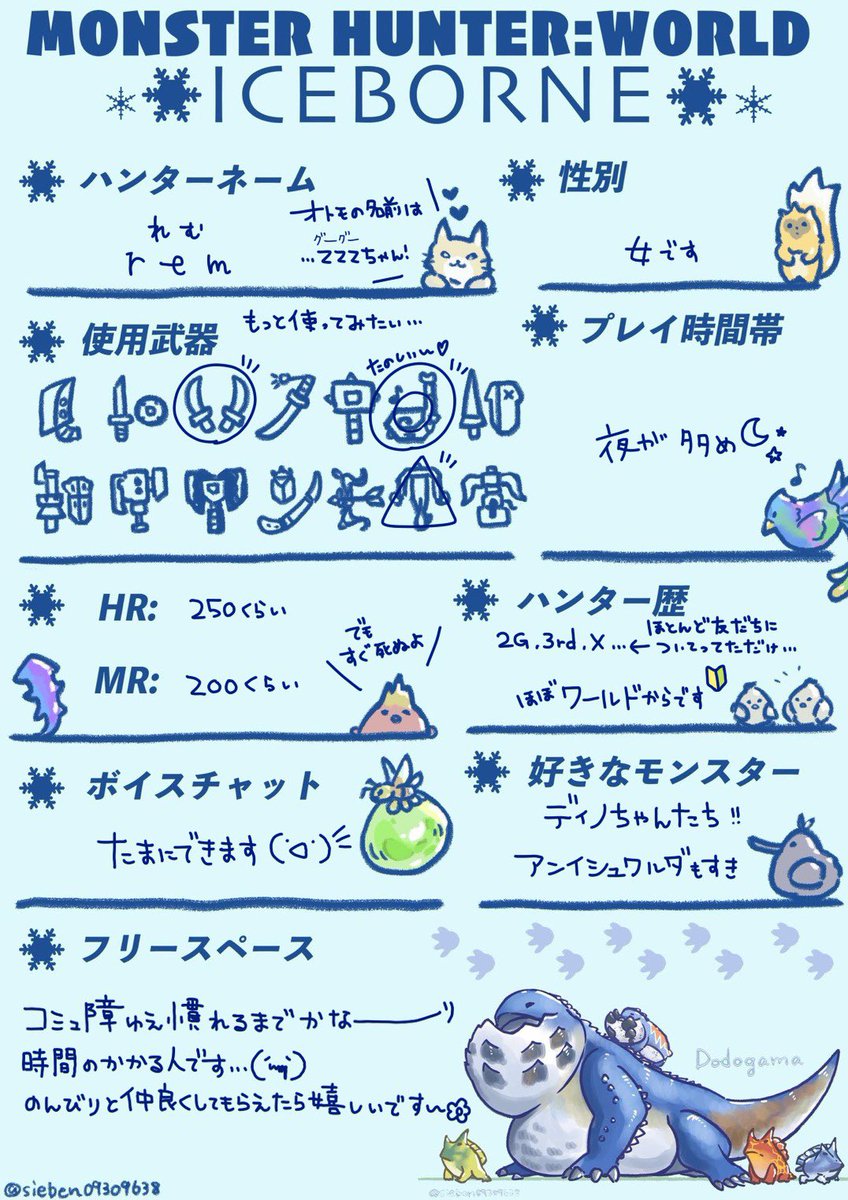 MONSTER HUNTER:WORLD
ICEBORNE
ハンターネーム
れむ
rem
オトモの名前は
グーグー
…ZZZちゃん!
性別
女です
使用武器
もっと使ってみたい…
たのしいい♡
プレイ時間帯
夜が多め
HR: 250くらい
MR: 200くらい
でも
すぐ死ぬよ
ハンター歴
2G.3rd.X…←ほとんど友だちに
ついてってただけ…
ほぼワールドからです
ボイスチャット
たまにできます
好きなモンスター
ディノちゃんたち!!
アンイシュワルダもすき
フリースペース
コミュ障ゆえ慣れるまでかなーーーり
時間のかかる人です…
のんびりと仲良くしてもらえたら嬉しいです〜
Dodogama
@sieben09309638
@sieben09309638